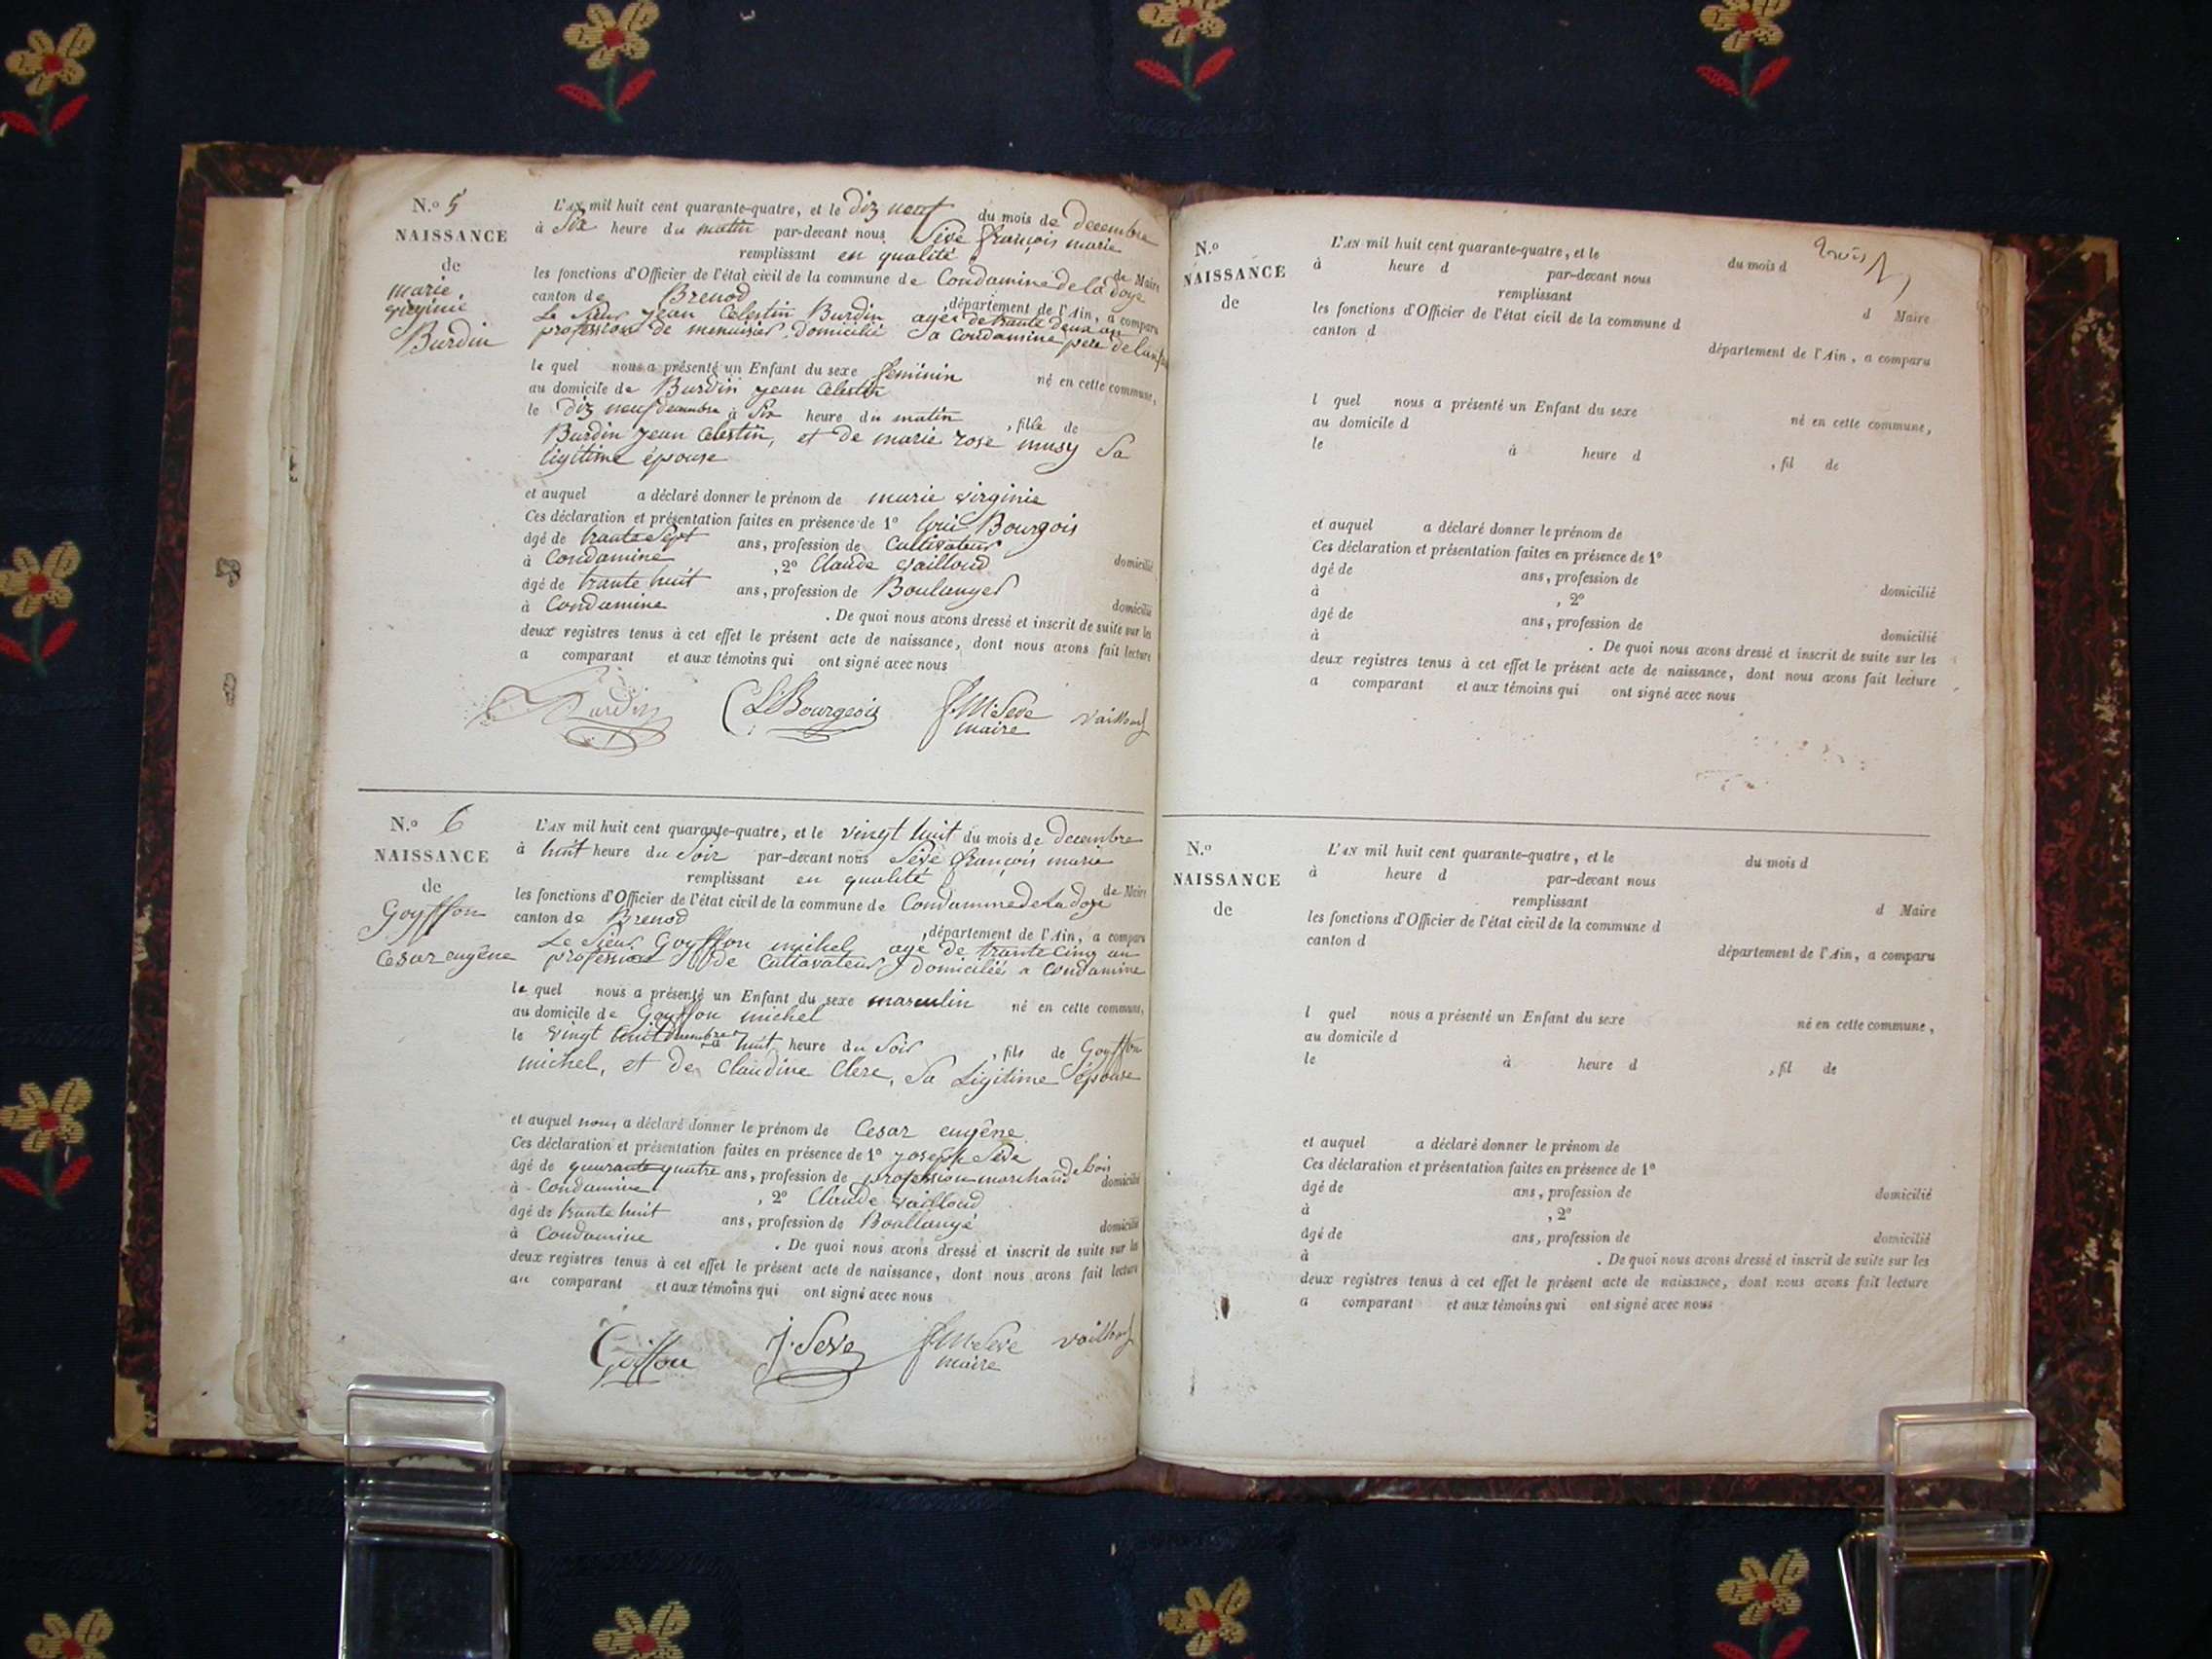 N.o 5
NAISSANCE
de
marie
virginie
Burdin
L'AN mil huit cent quarante-quatre, et le diz neuf du mois de decembre
à Six heure du matin par-devant nous Sève françois marie
remplissant en qualité de Maire
les fonctions d'Officier de l'état civil de la commune de Condamine de la doye
canton de Brenod, département de l'Ain, a comparu
Le Sieur Jean Celestin Burdin agé de trante deux an
profession de menuisier Domicilié a Condamine pere de lanfan
le quel nous a présenté un Enfant du sexe feminin né en cette commune,
au domicile de Burdin jean Celestin
le diz neuf decembre à Six heure du matin, fille de
Burdin jean Celestin, et de marie rose musy Sa
ligitime épouse
et auquel a déclaré donner le prénom de marie virginie
Ces déclaration et présentation faites en présence de 1o Bourgois
âgé de trante Sept ans, profession de Cultivateur domicilié
à Condamine, 2o Claude vailloud
âgé de trante huit ans, profession de Boulanger domicilié
à Condamine. De quoi nous avons dressé et inscrit de suite sur les
deux registres tenus à cet effet le présent acte de naissance, dont nous avons fait lecture
a comparant et aux témoins qui ont signé avec nous
Burdin Bourgeois f.M. Seve vailloud
maire
N.o 6
NAISSANCE
de
Goyffon
Cesar eugène
L'AN mil huit cent quarante-quatre, et le vingt huit du mois de decembre
à huit heure du Soir par-devant nous Sève françois marie
remplissant en qualité de Maire
les fonctions d'Officier de l'état civil de la commune de Condamine de La doye
canton de Brenod, département de l'Ain, a comparu
Le Sieur Goyffon michel agé de trante Cinq an
profession de Cultavateur domicilié a Condamine
le quel nous a présenté un Enfant du sexe masculin né en cette commune,
au domicile de Goyffon michel
le vingt huit decembre à huit heure du Soir, fils de Goyffon
michel, et de Claudine Clere, Sa Ligitime épouse
et auquel nous a déclaré donner le prénom de Cesar eugène
Ces déclaration et présentation faites en présence de 1o joseph Sève
âgé de quarante quatre ans, profession de profession marchand de bois domicilié
à Condamine, 2o Claude vailloud
âgé de trante huit ans, profession de Boullangé domicilié
à Condamine. De quoi nous avons dressé et inscrit de suite sur les
deux registres tenus à cet effet le présent acte de naissance, dont nous avons fait lecture
au comparant et aux témoins qui ont signé avec nous
Goiffon J. Seve f.M. Seve vailloud
maire
N.o
NAISSANCE
de
L'AN mil huit cent quarante-quatre, et le du mois d
à heure d par-devant nous
remplissant d Maire
les fonctions d'Officier de l'état civil de la commune d
canton d
département de l'Ain, a comparu
l quel nous a présenté un Enfant du sexe né en cette commune,
au domicile d
le à heure d, fil de
et auquel a déclaré donner le prénom de
Ces déclaration et présentation faites en présence de 1o
âgé de ans, profession de domicilié
à, 2o
âgé de ans, profession de domicilié
à. De quoi nous avons dressé et inscrit de suite sur les
deux registres tenus à cet effet le présent acte de naissance, dont nous avons fait lecture
a comparant et aux témoins qui ont signé avec nous
N.o
NAISSANCE
de
L'AN mil huit cent quarante-quatre, et le du mois d
à heure d par-devant nous
remplissant d Maire
les fonctions d'Officier de l'état civil de la commune d
canton d département de l'Ain, a comparu
l quel nous a présenté un Enfant du sexe né en cette commune,
au domicile d
le à heure d, fil de
et auquel a déclaré donner le prénom de
Ces déclaration et présentation faites en présence de 1o
âgé de ans, profession de domicilié
à, 2o
âgé de ans, profession de domicilié
à. De quoi nous avons dressé et inscrit de suite sur les
deux registres tenus à cet effet le présent acte de naissance, dont nous avons fait lecture
a comparant et aux témoins qui ont signé avec nous